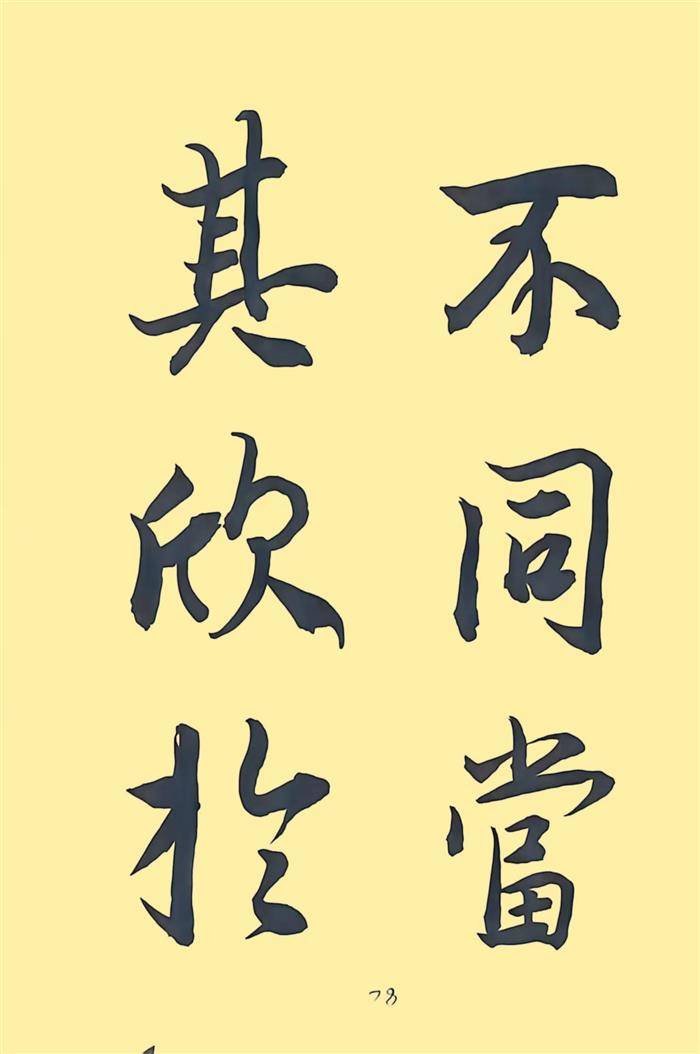 不同當
其欣於
28